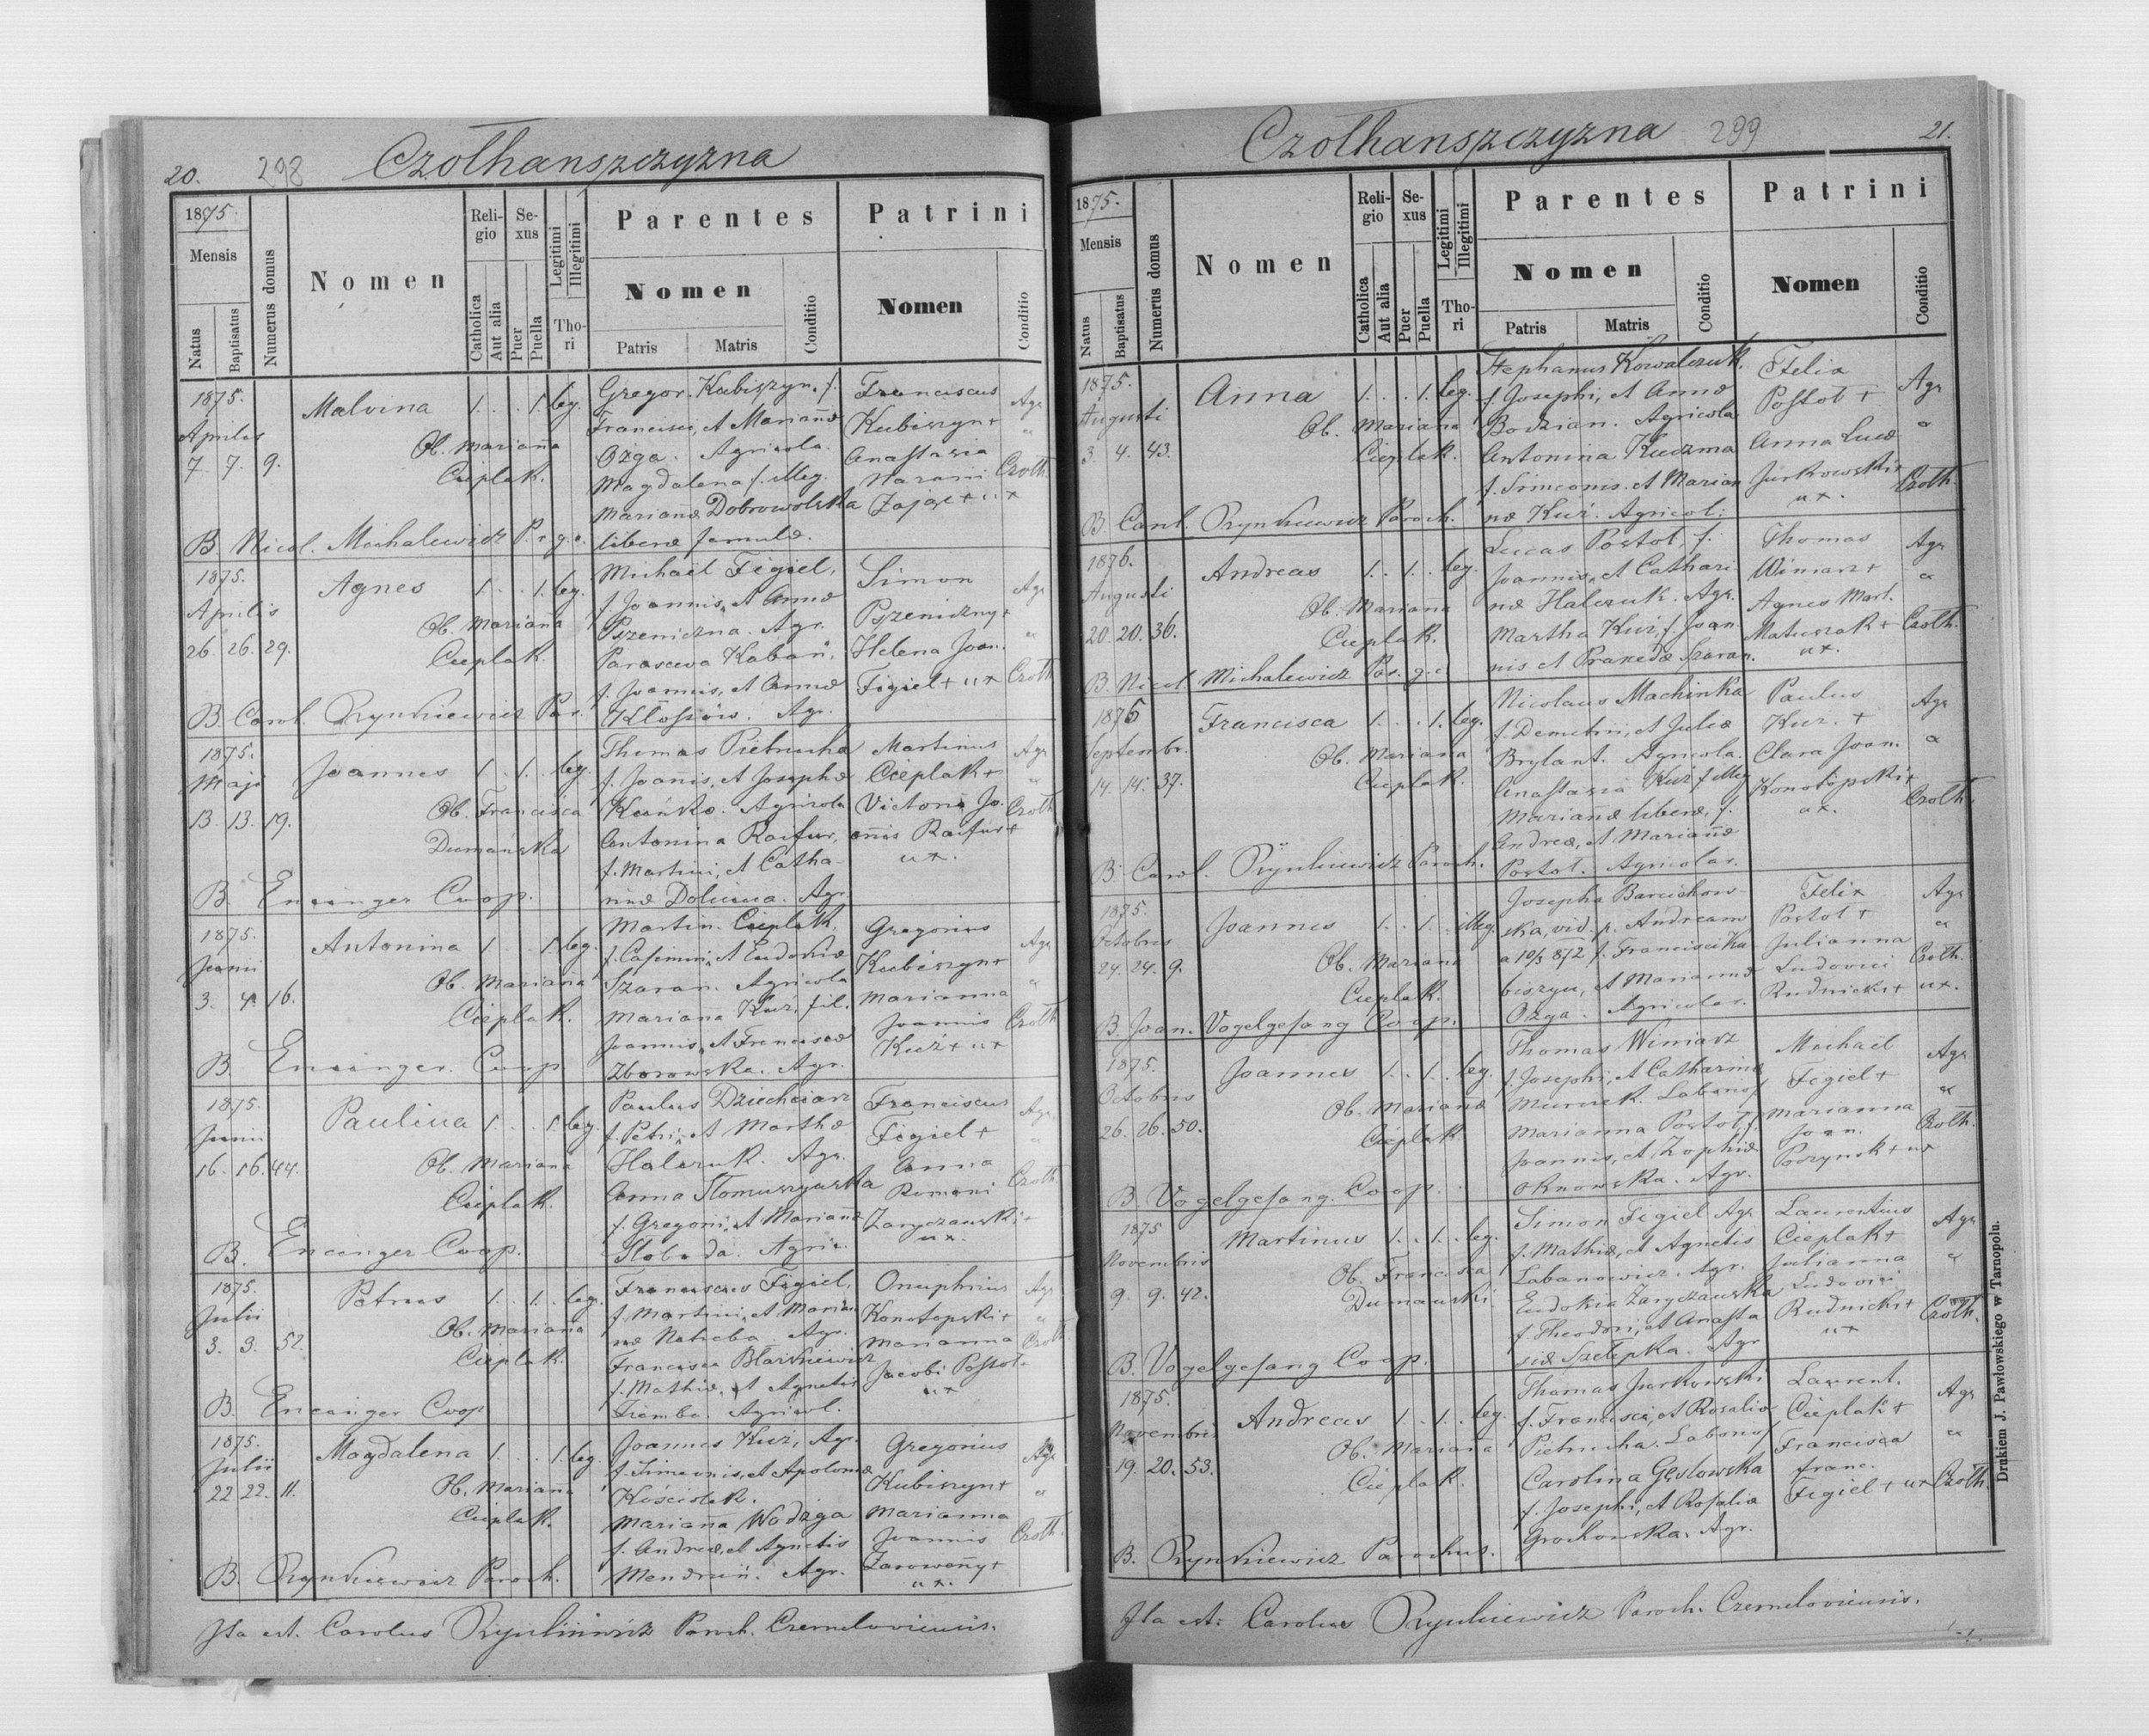 20. 298 Czołhanszczyzna
1875.
Mensis
Natus
Baptisatus
Numerus domus
Nomen
Religio
Catholica
Aut alia
Sexus
Puer
Puella
Legitimi
Illegitimi
Thori
Parentes
Nomen
Patris
Matris
Conditio
Patrini
Nomen
Conditio
1875. Aprilis 7. 7. 9.
Malvina 1. . . 1. leg.
Ob. Mariana
Cieplak.
Gregor. Kubiszyn, f.
Francisci, et Marianæ
Ożga. Agricola.
Magdalena f. illeg.
Marianæ Dobrowolska
liberæ famulæ.
Franciscus
Kubiszyn +
Anastasia
Zając + ux
Agr
"
Czołh.
B. Nicol. Michalewicz P. r. g. c.
1875. Aprilis 26. 26. 29.
Agnes 1. . . 1. leg.
Ob. Mariana
Cieplak.
Michael Figiel,
f. Joannis, et Annæ
Pszeniczna. Agr.
Parasceva Kaban,
f. Joannis, et Annæ
Agr.
Simon
Pszeniczny +
Helena Joan.
Figiel + ux
Agr
"
Czołh
B. Carol. Rynkiewicz Par.
1875. Maji 13. 13. 19.
Joannes 1. . 1. . leg.
Ob. Francisca
Dumańska
Thomas Pietrucha
f. Joanis, et Josephæ
Agricola
Antonina Raifur,
f. Martini, et Catha-
rinæ Dolinna. Agr.
Martinus
Cieplak +
Victoria Jo-
annis Raifur +
ux.
Agr
"
Czołh
B. Encinger Coop.
1875. Junii 3. 4. 16.
Antonina 1. . . 1. leg.
Ob. Mariana
Cieplak.
Martin. Cieplak,
f. Casimiri, et Eudoxiæ
Szaran. Agricola
Mariana Kuź, fil.
Joannis, et Franciscæ
Zborowska. Agr.
Gregorius
Kubiszyn +
Marianna
Joannis
Kuź + ux
Agr
"
Czołh
B. Encinger. Coop
1875. Junii 16. 16. 44.
Paulina 1. . . 1. leg.
Ob. Mariana
Cieplak.
Paulus Dziechciarz
f. Petri, et Marthæ
Halczuk. Agr.
Anna
f. Gregorii, et Marianæ
Słoboda. Agric.
Franciscus
Figiel +
Anna
Romani
Zaryczanski +
ux.
Agr.
"
Czołh
B. Encinger Coop.
1875. Julii 3. 3. 52.
Petrus 1. . 1. . leg.
Ob. Mariana
Cieplak.
Franciscus Figiel,
f. Martini, et Maria-
næ Agr.
Francisca
f. Mathiæ, et Agnetis
Agricol.
Onuphrius
Konotopski +
Marianna
Jacobi Postoł +
ux
Agr
"
Czołh
B. Encinger Coop
1875. Julii 22. 22. 11.
Magdalena 1. . . 1. leg.
Ob. Mariana
Cieplak.
Joannes Kuź, Agr.
f. Simeonis, et Apoloniæ
Kościolek.
Mariana Wodzga
f. Andreæ, et Agnetis
Mendruń. Agr.
Gregorius
Kubiszyn +
Marianna
Joannis
Zarowenny +
ux.
Agr
"
Czołh.
B. Rynkiewicz Paroch.
Ita est. Carolus Rynkiewicz Paroch. Czemeloviensis.
Czołhanszczyzna 299 21.
1875.
Mensis
Natus
Baptisatus
Numerus domus
Nomen
Religio
Catholica
Aut alia
Sexus
Puer
Puella
Legitimi
Illegitimi
Thori
Parentes
Nomen
Patris
Matris
Conditio
Patrini
Nomen
Conditio
1875. Augusti 3. 4. 43.
Anna 1. . . 1. leg.
Ob. Mariana
Cieplak.
Stephanus Kowalczuk,
f. Josephi, et Annæ
Bodzian. Agricola
Antonina Kuczma
f. Simeonis. et Marian
næ Kuź. Agricol:
Felix
Postoł +
Anna Lucæ
Jurkowski +
ux.
Agr
"
Czołh.
B. Carol. Rynkiewicz Paroch.
1876. Augusti 20. 20. 36.
Andreas 1. . 1. . leg.
Ob. Mariana
Cieplak.
Lucas Postoł, f.
Joannis, et Cathari
næ Halczuk. Agr.
Martha Kuź, f. Joan-
nis et Praxedæ Szaran.
Thomas
Winiarz +
Agnes Mart.
Matuszak +
ux.
Agr
"
Czołh.
B. Nicol. Michalewicz Par. g. c
1875 Septembr. 14. 14. 37.
Francisca 1. . . 1. leg.
Ob. Mariana
Cieplak.
Nicolaus Machinka
f. Demetrii, et Juliæ
Brylant. Agricola.
Anastasia Kuź f. illeg
Marianæ liberæ, f.
Andreæ, et Marianæ
Postoł. Agricolar.
Paulus
Kuz. +
Clara Joan.
Konotopski +
ux.
Agr
"
Czołh.
B. Carol. Rynkiewicz Paroch.
1875. Octobris 24. 24. 9.
Joannes 1. . 1. . illeg.
Ob. Mariana
Cieplak.
Josepha Barcichow-
ska, vid. p. Andream
a 10/5 872 f. Francisci Ku-
biszyn, et Mariannæ
Ożga. Agricolar.
Felix
Postoł +
Julianna
Ludovici
Rudnicki + ux.
Agr
"
Czołh.
B. Joan. Vogelgesang Coop.
1875. Octobris 26. 26. 50.
Joannes 1. . 1. . leg.
Ob. Marianæ
Cieplak
Thomas Winiarz
f. Josephi, et Catharinæ
Labanos
Marianna Postoł, f.
Joannis, et Zophiæ
Oknowska. Agr.
Michael
Figiel +
Marianna
Joan.
ux
Agr
"
Czołh.
B. Vogelgesang. Coop.
1875 Novembris 9. 9. 42.
Martinus 1. . 1. . leg.
Ob. Francisca
Dumanski
Simon Figiel Agr
f. Mathiæ, et Agnetis
Labanowicz. Agr.
Eudokia Zaryczawska
f. Theodori, et Anasta
siæ Szelepka. Agr
Laurentius
Cieplak +
Julianna
Ludovici
Rudnicki +
ux
Agr
"
Czołh.
B. Vogelgesang Coop.
1875. Novembris 19. 20. 53.
Andreas 1. . 1. . leg.
Ob. Mariana
Cieplak.
Thomas Jurkowski
f. Francisci, et Rosaliæ
Pietrucha. Labonos
Carolina Gęslowska
f. Josephi, et Rosaliæ
Grochowska. Agr.
Laurent.
Cieplak +
Francisca
Franc.
Figiel + ux
Agr
"
Czołh.
B. Rynkiewicz Parochus.
Ita est: Carolus Rynkiewicz Paroch. Czemeloviensis.
Drukiem J. Pawłowskiego w Tarnopolu.